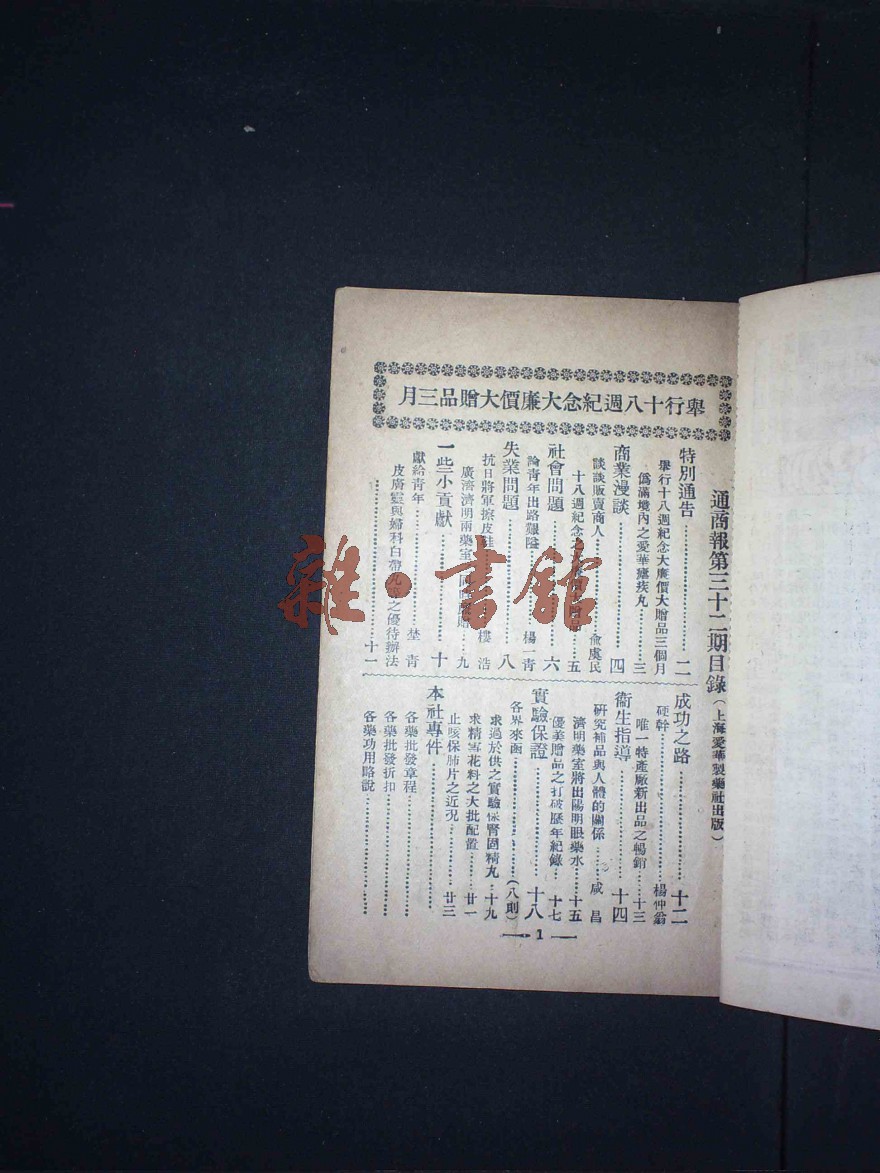 舉行十八週紀念大廉價大贈品三月
通商報第三十二期目錄(上海愛華製藥社出版)
特別通告……二
舉行十八週紀念大廉價大贈品三個月
偽滿境內之愛華瘧疾丸……三
商業漫談……四
談談販賣商人……俞虞民
十八週紀念……五
社會問題……六
論青年出路艱隘……楊一青
失業問題……八
抗日將軍擦皮鞋……樓浩
廣濟濟明兩藥室……九
一些小貢獻……十
獻給青年……埜青
皮膚靈與婦科白帶丸……之優待辦法
……十一
成功之路……十二
硬幹……楊仲翁
唯一特產廠新出品之暢銷……十三
衞生指導……十四
研究補品與人體的關係……咸昌
濟明藥室將出陽明眼藥水……十五
優美贈品之打破歷年紀錄……十七
實驗保證……十八
各界來函……(八則)
求過於供之實驗保腎固精丸…十九
求精雪花料之大批配置…廿一
止咳保肺片之近況…廿三
本社專件
各藥批發章程
各藥批發折扣
各藥功用略說
1
雜·書館